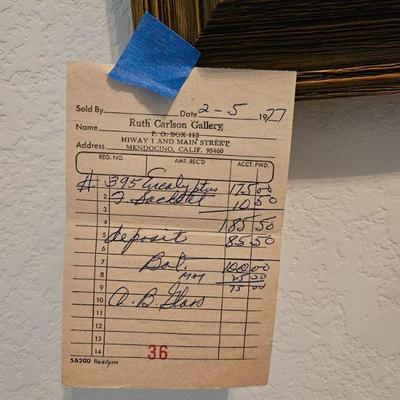 Sold By Date 2-5 1977
Ruth Carlson Gallery,
Name P. O. BOX 112
HIWAY 1 AND MAIN STREET,
Address MENDOCINO, CALIF. 95460
REG. NO. AMT. REC'D ACCT. FWD.
# 395 Eucalyptus 175 00
2 10 50
3
4 185 50
5 deposit 85 50
6
7 Bal. 100 00
8 25 00
9 75 00
10 O. B. Glass
11
12
13
14 36
5A200 Rediform